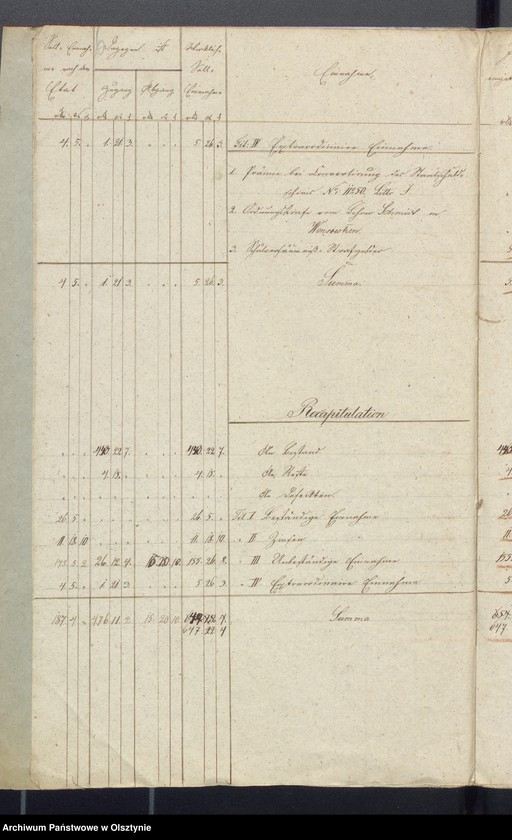 Soll-Einnah- Dagegen ist Wirkliche
me nach dem Soll-
Etat Zugang Abgang Einnahme Einnahme.
4. 5. . 1. 21. 3. . . . 5. 26. 3. Tit: IV Extraordinaire Einnahme
1. Prämie bei Convertirung des Staatsschuld-
scheins No 11250. Litt: F
2. Ordnungsstrafe vom Lehrer Schmidt in
3. Schulversäumniß-Strafgelder
4. 5. . 1. 21. 3. . . . 5. 26. 3. Summa.
Recapitulation
. . . 22. 7. . . . 22. 7. An Bestand
. . . 4. 15. . . . . 4. 15. . An Reste
. . . . . . . . . . . . An Defecten
26. 5. . . . . . . . 26. 5. . Tit: I Beständige Einnahme
11. 18. 10. . . . . . . 11. 18. 10. " II Zinsen
145. 5. 2. 26. 12. 4. 15. 20. 10. 155. 26. 8. " III Unbeständige Einnahme
4. 5. . 1. 21. 3. . . . 5. 26. 3. " IV Extraordinaire Einnahme
187. 4. . 476. 11. 2. 15. 20. 10. Summa
647. 22. 4
Archiwum Państwowe w Olsztynie